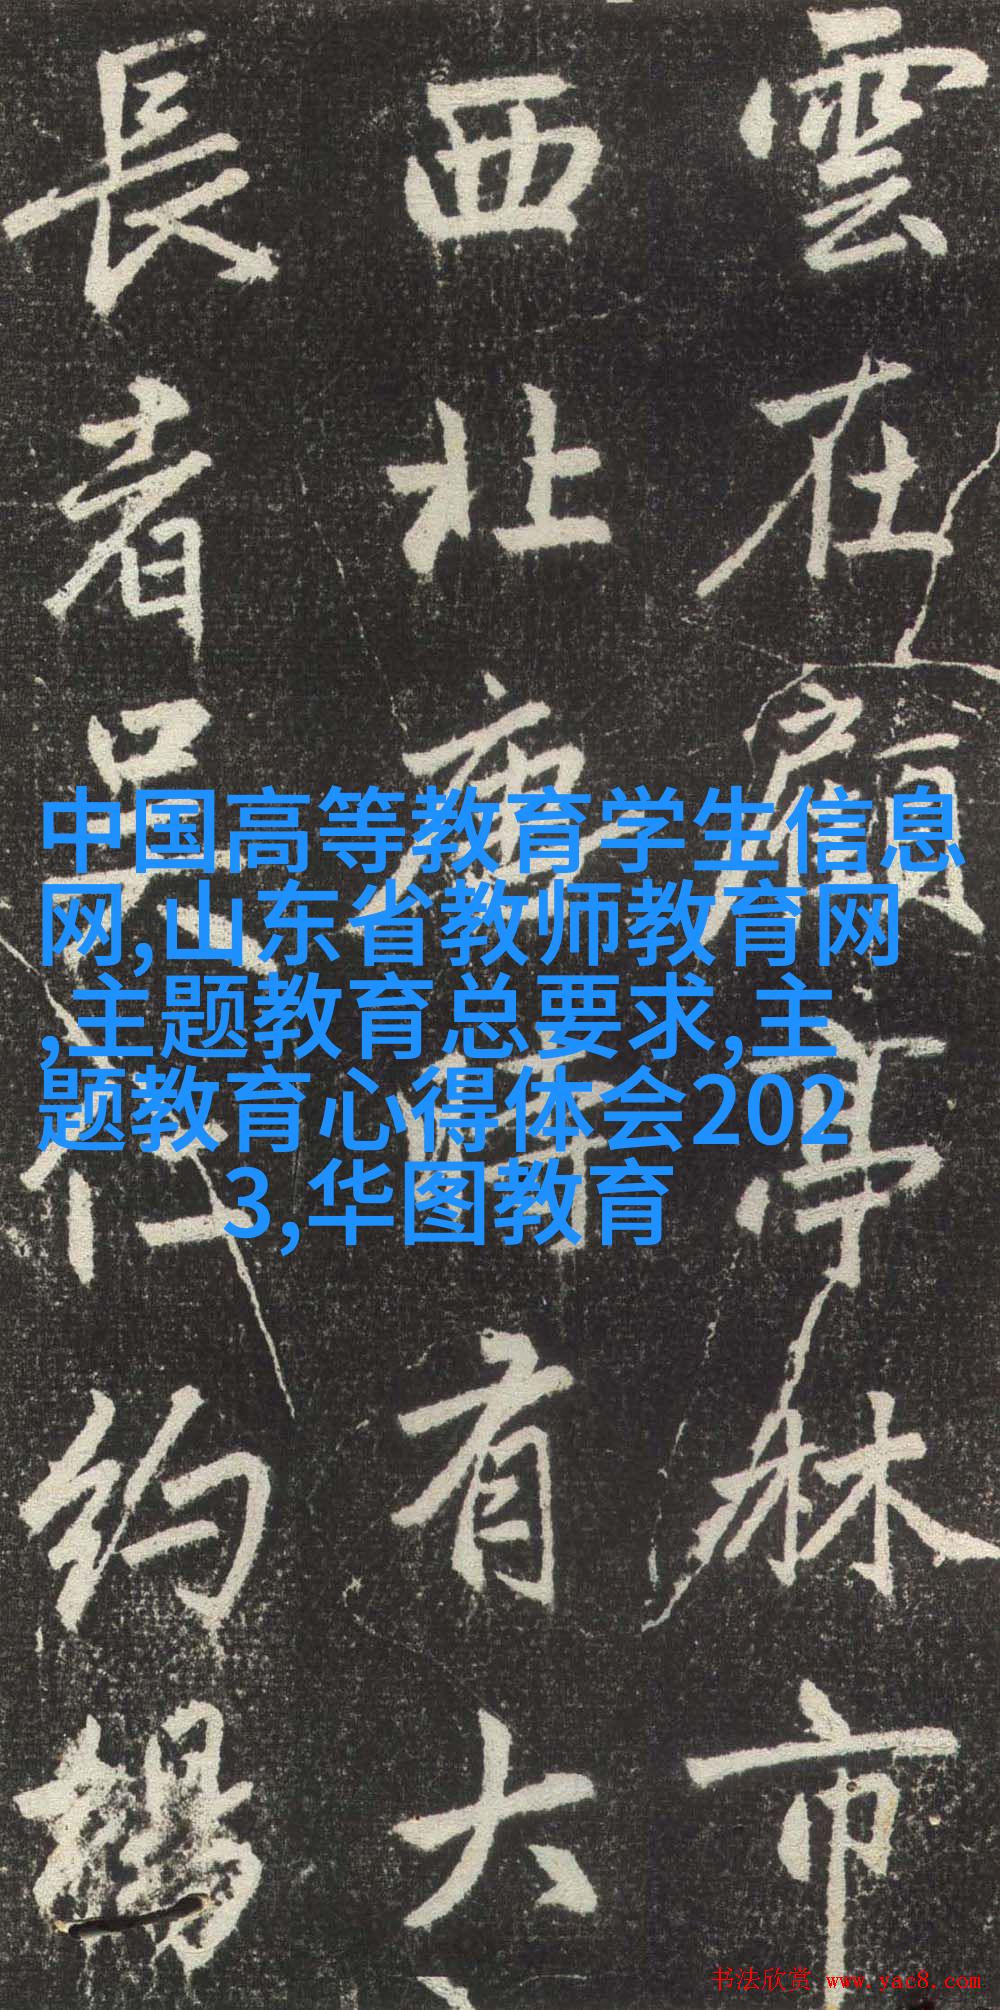 雲在顧亭林市
西北唐時有大
長者吳仁約
中国高等教育学生信息
网,山东省教师教育网
,主题教育总要求,主
题教育心得体会202
3,华图教育
书法欣赏 www.yac8.com